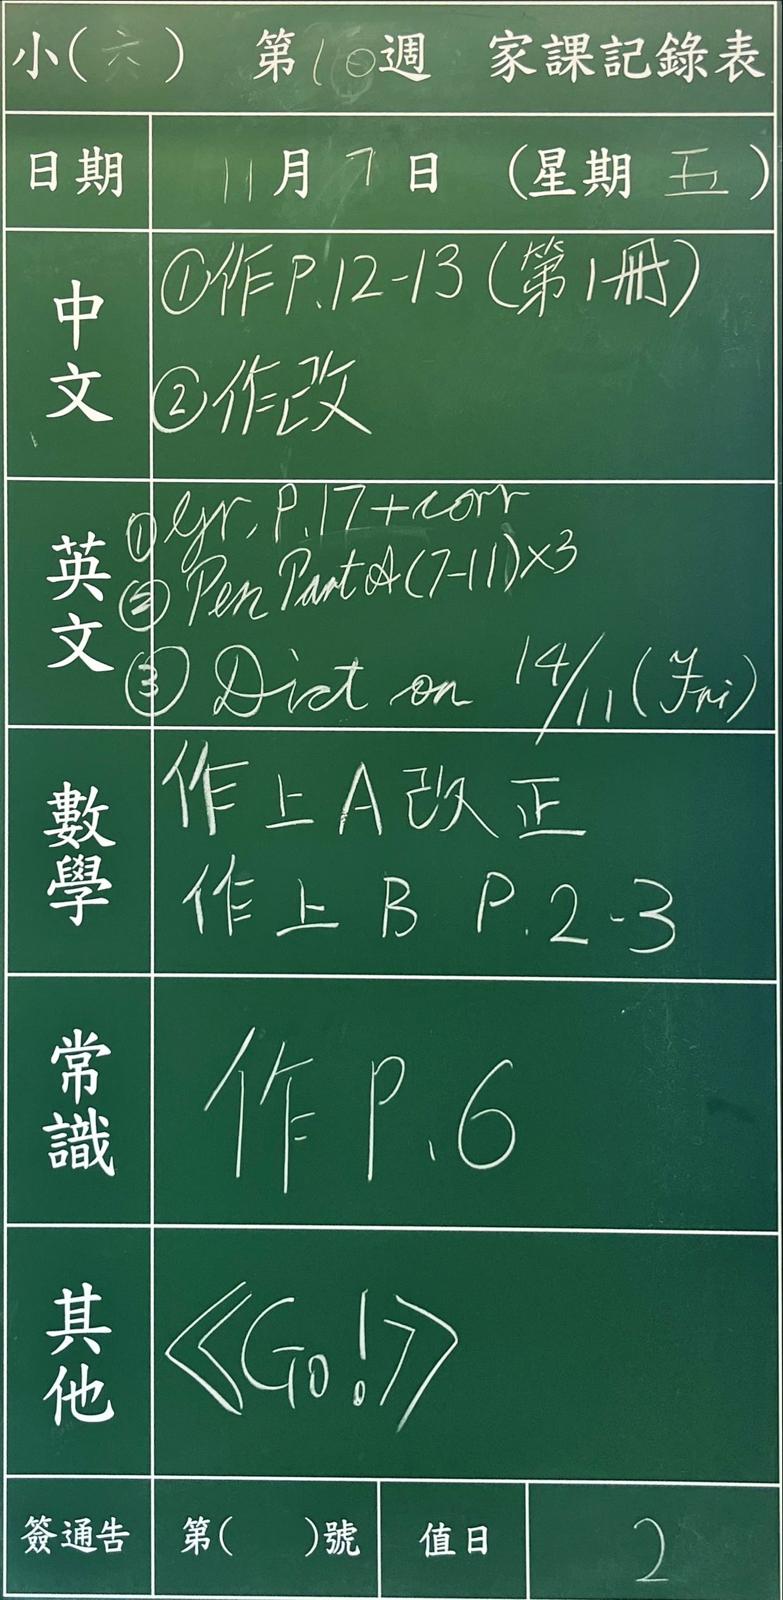 小(六) 第10週 家課記錄表
日期 11月7日 (星期五)
中文
①作P.12-13(第1冊)
②作改
英文
①Gr. P.17+corr
②Pen Part A(7-11)×3
③Dict on 14/11(Fri)
數學
作上A改正
作上B P.2-3
常識
作P.6
其他
《Go!》
簽通告 第( )號 值日 2